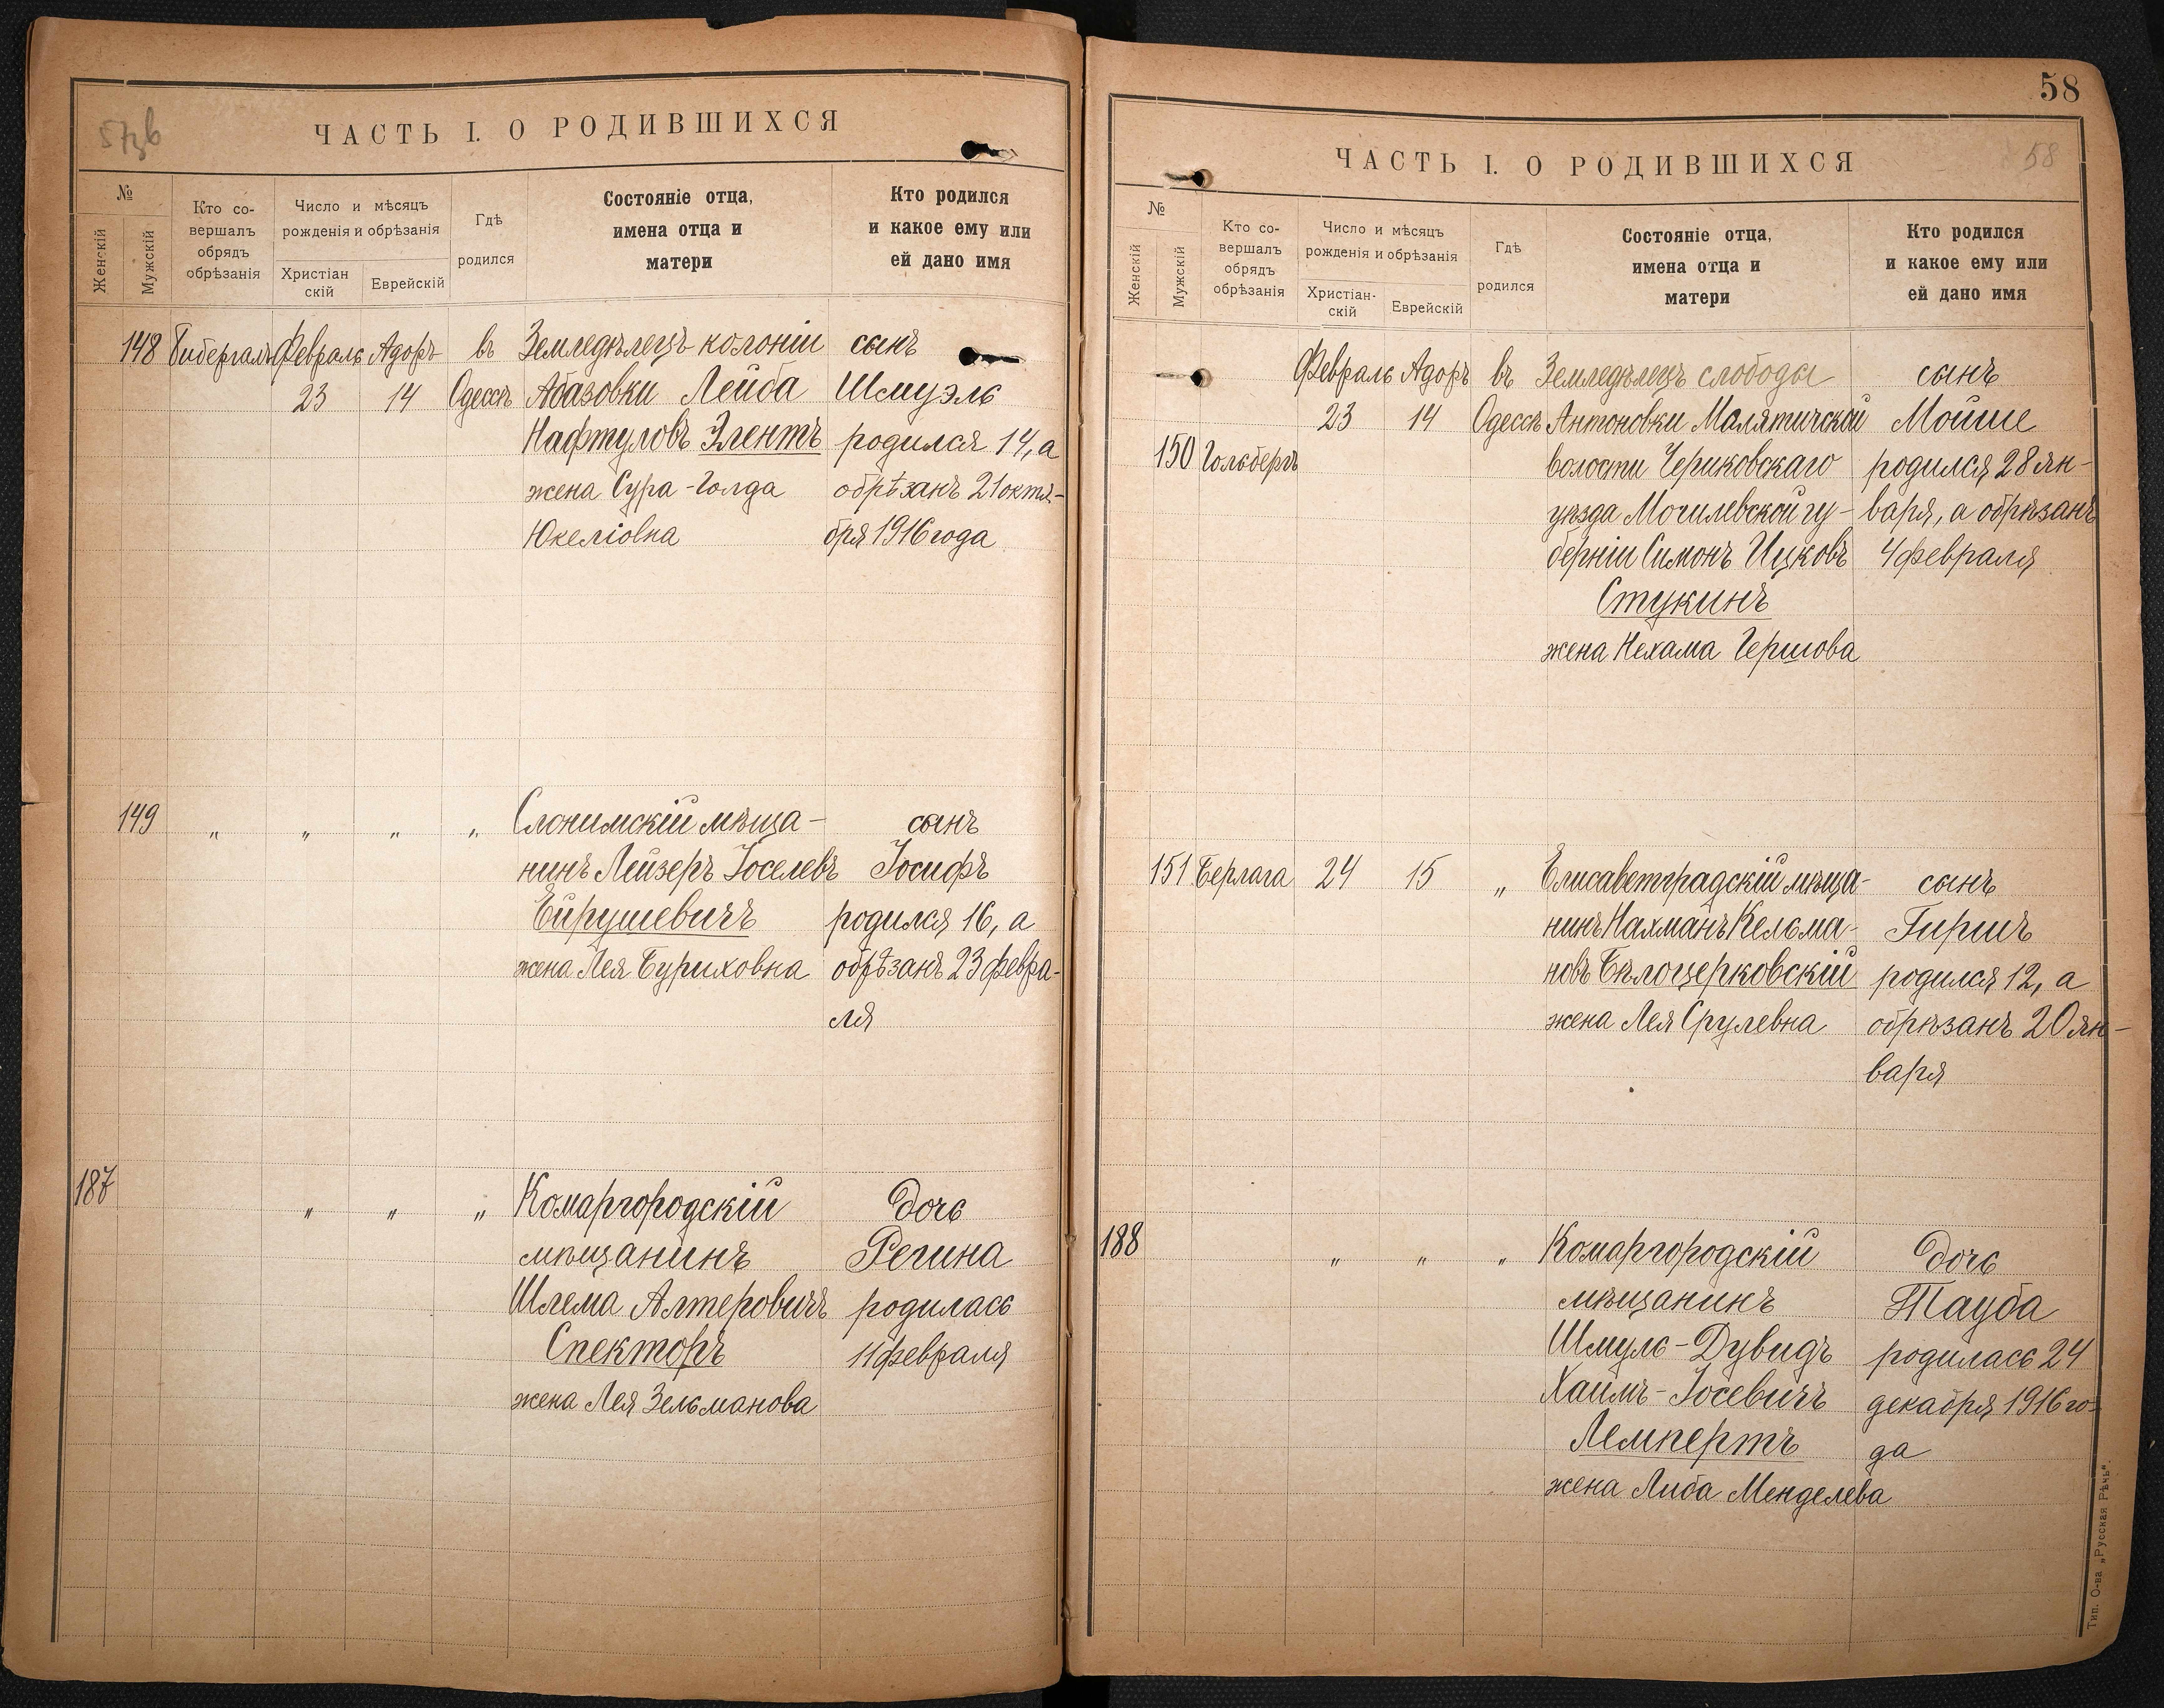 57зв
ЧАСТЬ I. О РОДИВШИХСЯ
№
Женскій
Мужскій
Кто со-
вершалъ
обрядъ
обрѣзанія
Число и мѣсяцъ
рожденія и обрѣзанія
Христіан
скій
Еврейскій
Гдѣ
родился
Состояніе отца,
имена отца и
матери
Кто родился
и какое ему или
ей дано имя
148 Февраль Адоръ въ Земледѣлецъ колоніи сынъ
23 14 Одессѣ Абазовки Лейба Шмуэль
Нафтуловъ Элентъ родился 14, а
жена Сура-Голда обрѣзанъ 21 октя-
Юкеліовна бря 1916 года
149 " " " " Слонимскій мѣща- сынъ
нинъ Лейзеръ Іоселевъ Іосифъ
Ейрушевичъ родился 16, а
жена Лея Буриховна обрѣзанъ 23 февра-
ля
187 " " " Комаргородскій дочь
мѣщанинъ Регина
Шлема Алтеровичъ родилась
Спекторъ 11 февраля
жена Лея Зельманова
58
58
ЧАСТЬ I. О РОДИВШИХСЯ
№
Женскій
Мужскій
Кто со-
вершалъ
обрядъ
обрѣзанія
Число и мѣсяцъ
рожденія и обрѣзанія
Христіан-
скій
Еврейскій
Гдѣ
родился
Состояніе отца,
имена отца и
матери
Кто родился
и какое ему или
ей дано имя
Февраль Адоръ въ Земледѣлецъ слободы сынъ
23 14 Одессѣ Антоновки Малятичской Мойше
150 Гольбергъ волости Чериковскаго родился 28 ян-
уѣзда Могилевской гу- варя, а обрѣзанъ
берніи Симонъ Ицковъ 4 февраля
Стукинъ
жена Нехама Гершова
151 Берлага 24 15 " Елисаветградскій мѣща- сынъ
нинъ Нахманъ Кельма- Гиршъ
новъ Бѣлоцерковскій родился 12, а
жена Лея Срулевна обрѣзанъ 20 ян-
варя
188 " " " Комаргородскій дочь
мѣщанинъ Тауба
Шмуль-Дувидъ родилась 24
Хаимъ-Іосевичъ декабря 1916 го-
Лемпертъ да
жена Либа Менделева
Тип. О-ва „Русская Рѣчь".